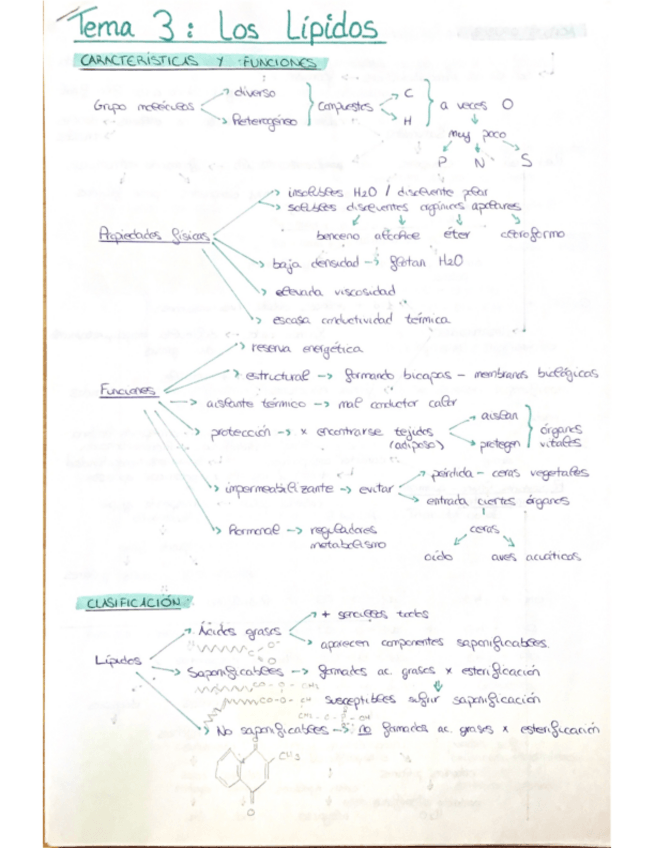 Tema 3: Los Lípidos
CARACTERÍSTICAS Y FUNCIONES
Grupo moléculas → diverso
→ Heterogéneo
compuestos → C
→ H
a veces O
muy poco
P N S
Propiedades físicas
→ insolubles H2O / disolvente polar
→ solubles disolventes orgánicos apolares
benceno alcohol éter cloroformo
→ baja densidad → flotan H2O
→ elevada viscosidad
→ escasa conductividad térmica
Funciones
→ reserva energética
→ estructural → formando bicapas - membranas biológicas
→ aislante térmico → mal conductor calor
→ protección → x encontrarse tejidos (adiposo)
→ aislan
→ protegen
órganos vitales
→ impermeabilizante → evitar
→ pérdida - ceras vegetales
→ entrada ciertos órganos
ceras
oído aves acuáticas
→ Hormonal → reguladores metabolismo
CLASIFICACIÓN
Lípidos
→ Ácidos grasos
→ + sencillos todos
→ aparecen componentes saponificables
C O⁻
O
→ Saponificables → formados ac. grasos x esterificación
CO - O - CH2
CO-O- CH
susceptibles sufrir saponificación
→ No saponificables → no formados ac. grasos x esterificación
O
CH3
O